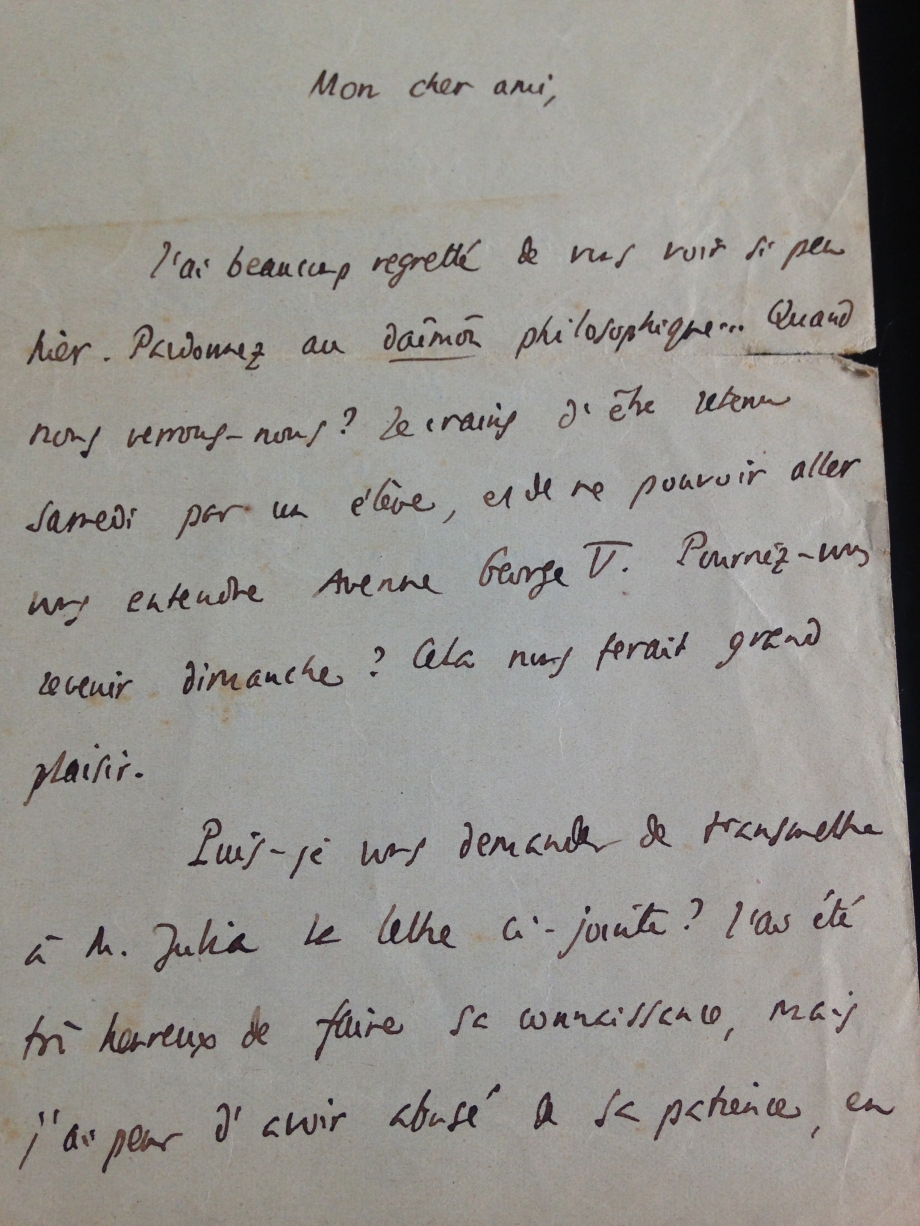 Mon cher ami,
J'ai beaucoup regretté de vous voir si peu
hier. Pardonnez au daîmôn philosophique... Quand
nous verrons-nous? Je crains d'être retenu
samedi par un élève, et de ne pouvoir aller
vous entendre Avenue George V. Pourriez-vous
revenir dimanche? Cela nous ferait grand
plaisir.
Puis-je vous demander de transmettre
à M. Julia la lettre ci-jointe? J'ai été
très heureux de faire sa connaissance, mais
j'ai peur d'avoir abusé de sa patience, en